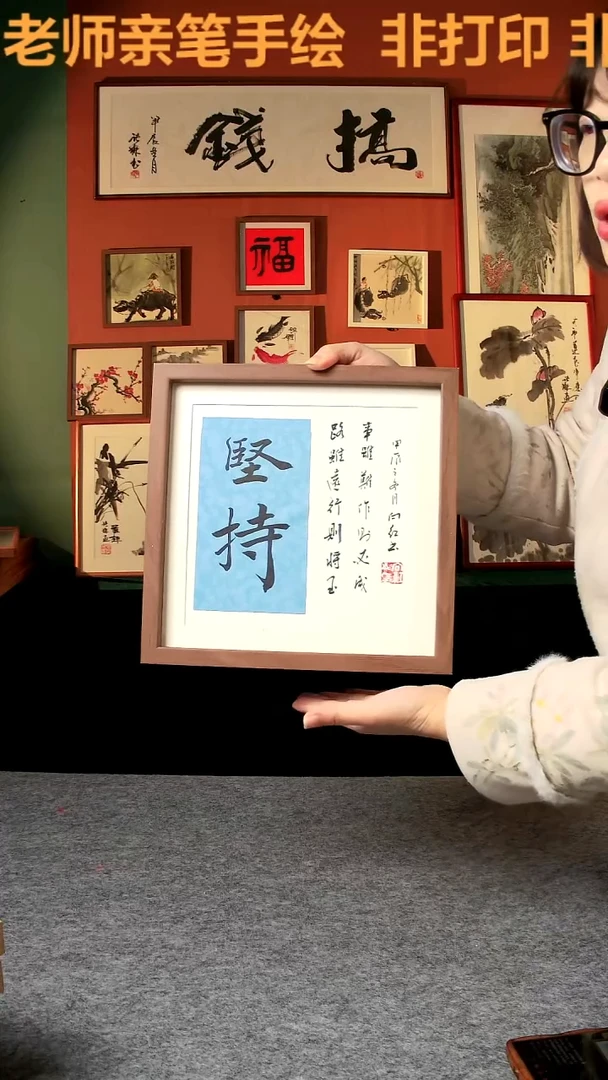 老师亲笔手绘 非打印 非
搞錢
甲辰冬月
福
堅持
路雖遠行則將至
事雖難作則必成
甲辰之冬月